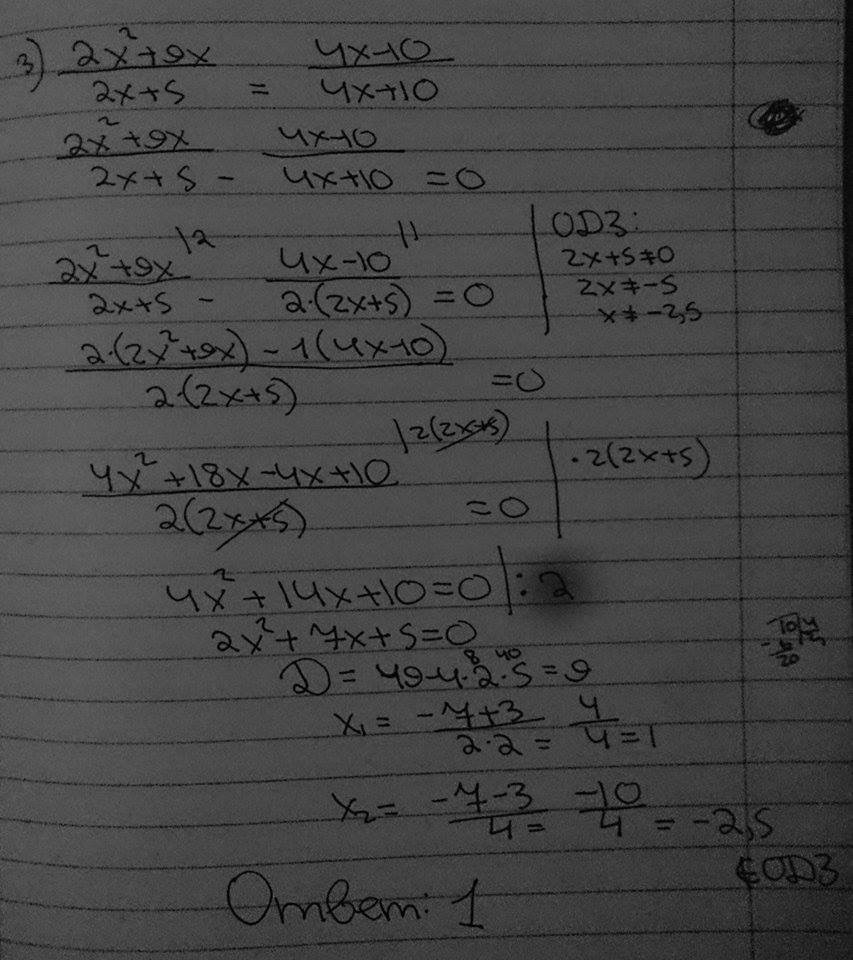 3) (2x²+9x)/(2x+5) = (4x-10)/(4x+10)
(2x²+9x)/(2x+5) - (4x-10)/(4x+10) = 0
(2x²+9x)/(2x+5) |2 - (4x-10)/(2·(2x+5)) |1 = 0
ОДЗ:
2x+5≠0
2x≠-5
x≠-2,5
(2·(2x²+9x)-1(4x-10))/(2·(2x+5)) = 0
(4x²+18x-4x+10)/(2(2x+5)) |2(2x+5) = 0 | ·2(2x+5)
4x²+14x+10=0 |:2
2x²+7x+5=0
D = 49-4·2·5 = 9
8 40
x₁ = (-7+3)/(2·2) = 4/4 = 1
x₂ = (-7-3)/4 = -10/4 = -2,5
∉ОДЗ
Ответ: 1